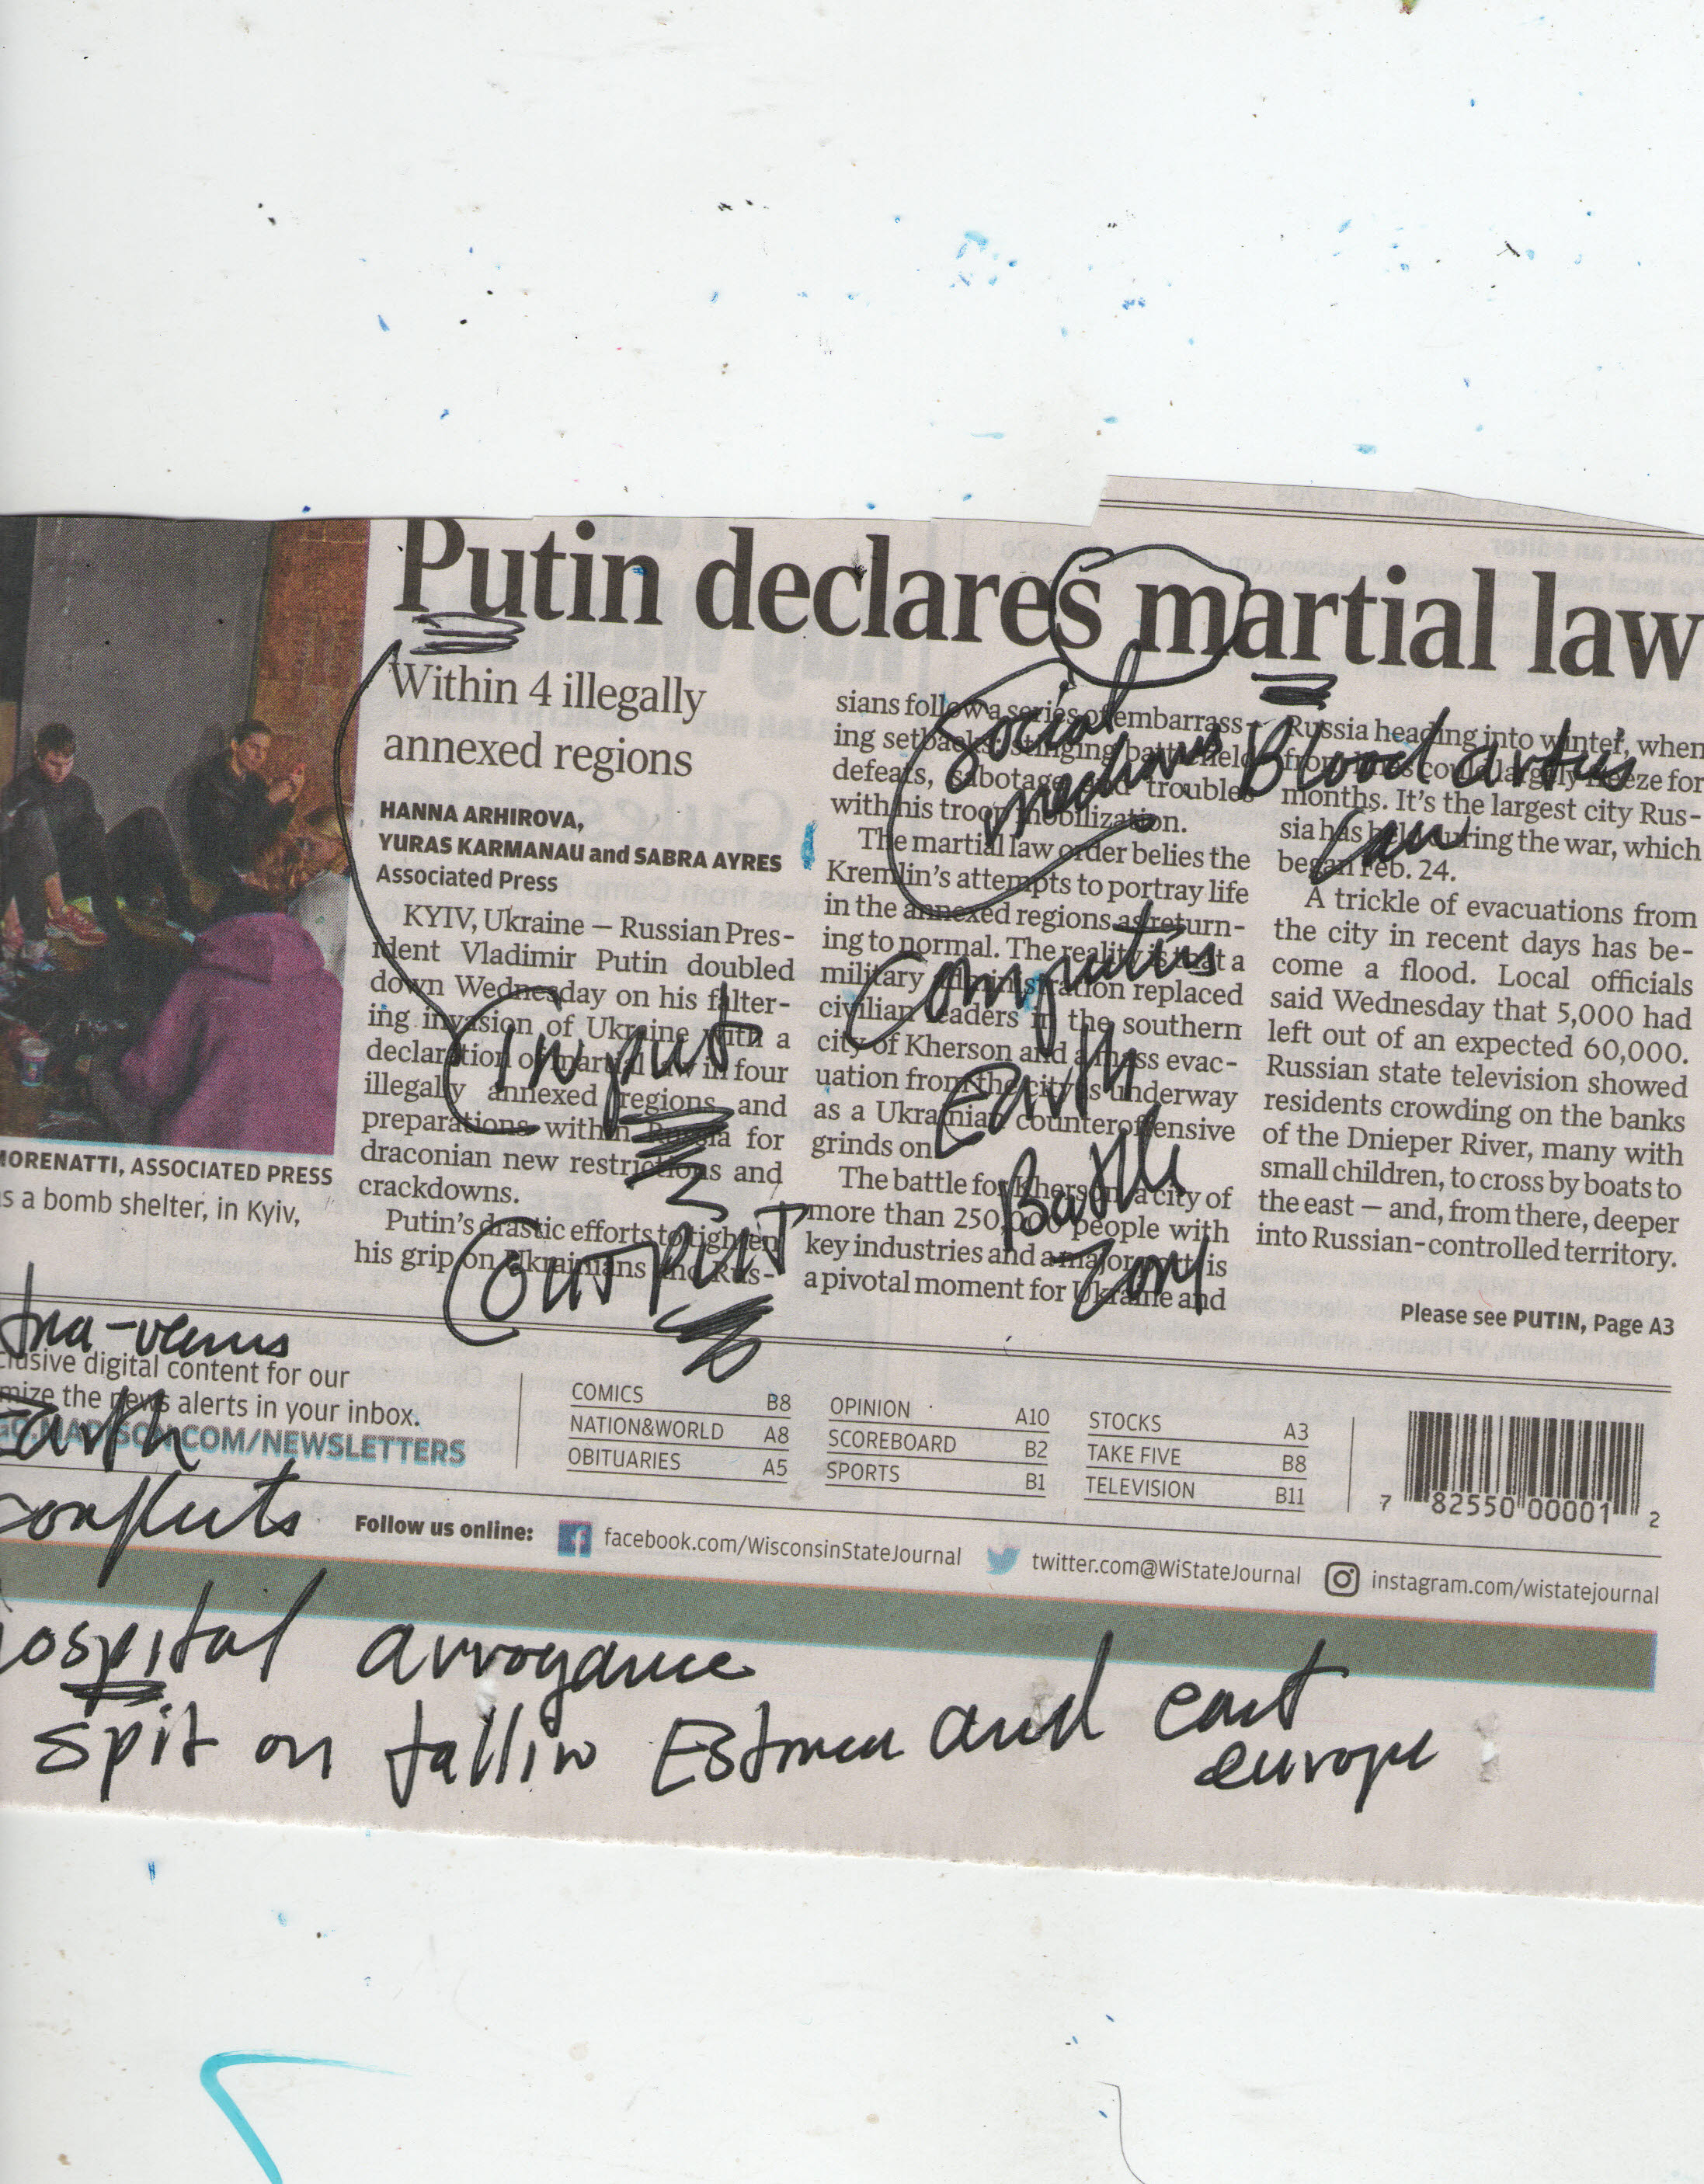 Putin declares martial law
Within 4 illegally
annexed regions
HANNA ARHIROVA,
YURAS KARMANAU and SABRA AYRES
Associated Press
KYIV, Ukraine — Russian Pres-
ident Vladimir Putin doubled
down Wednesday on his falter-
ing invasion of Ukraine with a
declaration of martial law in four
illegally annexed regions and
preparations within Russia for
draconian new restrictions and
crackdowns.
Putin's drastic efforts to tighten
his grip on Ukrainians and Rus-
sians follow a series of embarrass-
ing setbacks: stinging battlefield
defeats, sabotage and troubles
with his troop mobilization.
The martial law order belies the
Kremlin's attempts to portray life
in the annexed regions as return-
ing to normal. The reality is that a
military administration replaced
civilian leaders in the southern
city of Kherson and a mass evac-
uation from the city is underway
as a Ukrainian counteroffensive
grinds on.
The battle for Kherson, a city of
more than 250,000 people with
key industries and a major port, is
a pivotal moment for Ukraine and
Russia heading into winter, when
front lines could largely freeze for
months. It's the largest city Rus-
sia has held during the war, which
began Feb. 24.
A trickle of evacuations from
the city in recent days has be-
come a flood. Local officials
said Wednesday that 5,000 had
left out of an expected 60,000.
Russian state television showed
residents crowding on the banks
of the Dnieper River, many with
small children, to cross by boats to
the east — and, from there, deeper
into Russian-controlled territory.
Please see PUTIN, Page A3
MORENATTI, ASSOCIATED PRESS
as a bomb shelter, in Kyiv,
Social
Blood
law
Computers
Earth
Battle
Zon
Input
OUTPUT
-venus
Earth
conflicts
clusive digital content for our
mize the news alerts in your inbox.
GO.MADISON.COM/NEWSLETTERS
COMICS B8
NATION&WORLD A8
OBITUARIES A5
OPINION A10
SCOREBOARD B2
SPORTS B1
STOCKS A3
TAKE FIVE B8
TELEVISION B11
7 82550 00001 2
Follow us online: facebook.com/WisconsinStateJournal twitter.com@WiStateJournal instagram.com/wistatejournal
hospital arrogance
spit on tallin Estonea and east
europe